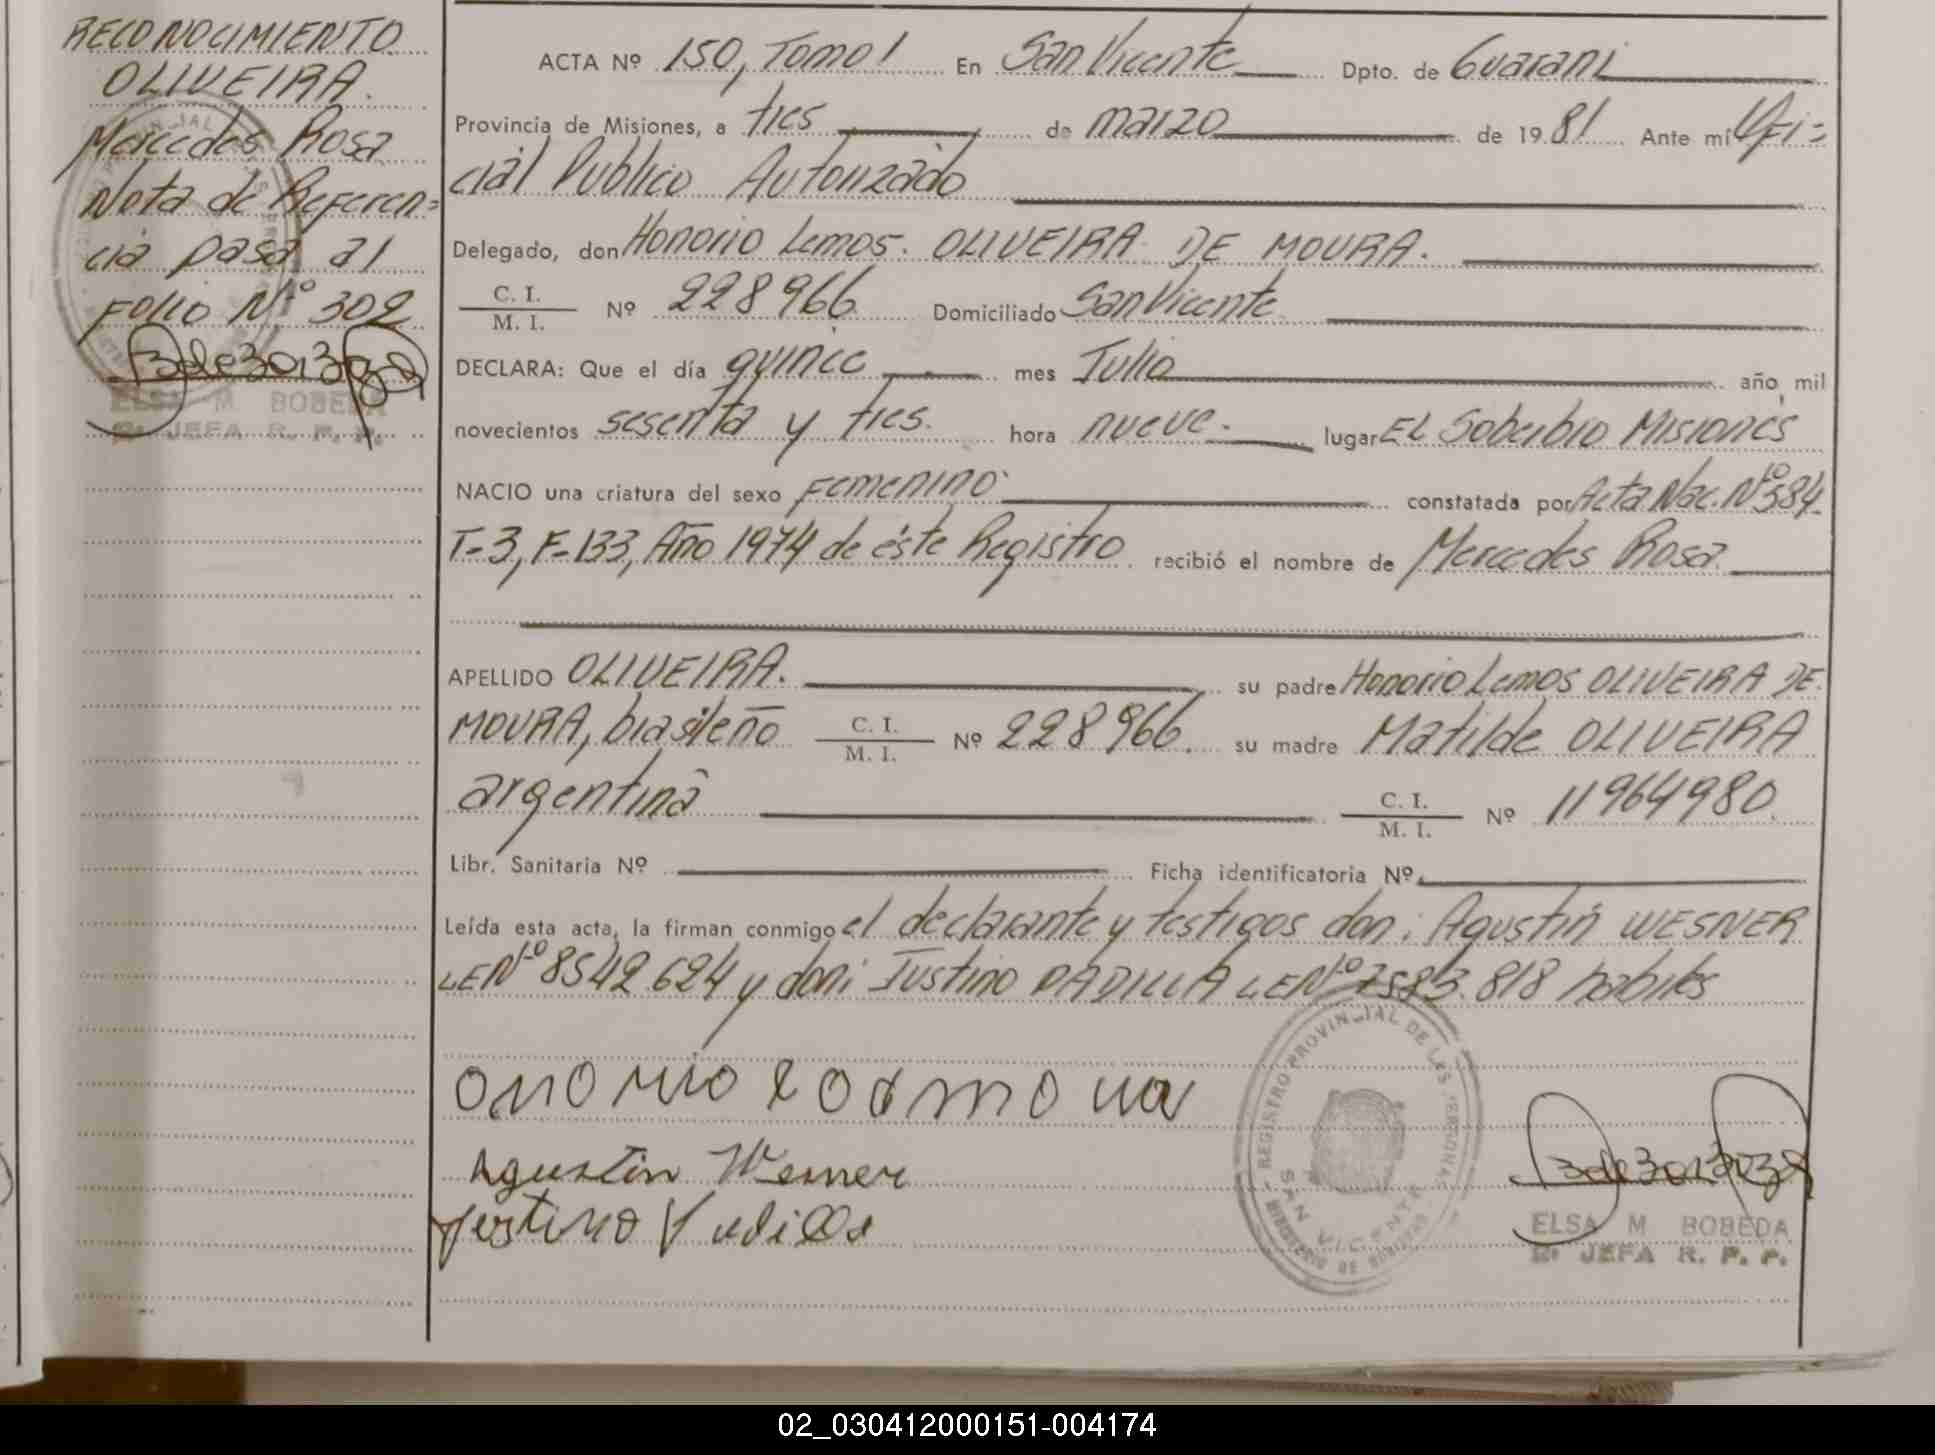 RECONOCIMIENTO
OLIVEIRA.
Mercedes Rosa
Nota de Referen=
cia pasa al
Folio Nº 302
ELSA M BOBEDA
2: JEFA R. P. P.
ACTA Nº 150, Tomo 1 En San Vicente Dpto. de Guarani
Provincia de Misiones, a tres de marzo de 1981 Ante mí Ofi=
cial Publico Autorizado
Delegado, don Honorio Lemos. OLIVEIRA DE MOURA.
C. I. / M. I. Nº 228966 Domiciliado San Vicente
DECLARA: Que el día quince mes Julio año mil
novecientos sesenta y tres. hora nueve. lugar El Soberbio Misiones
NACIO una criatura del sexo Femenino constatada por Acta Nac. Nº 384.
T-3, F-133, Año 1974 de éste Registro recibió el nombre de Mercedes Rosa
APELLIDO OLIVEIRA. su padre Honorio Lemos OLIVEIRA DE
MOURA, brasileño C. I. / M. I. Nº 228966. su madre Matilde OLIVEIRA
argentina C. I. / M. I. Nº 11964980.
Libr. Sanitaria Nº Ficha identificatoria Nº
Leída esta acta, la firman conmigo el declarante y testigos don: Agustín WESNER
LE Nº 8542.624 y don: Justino PADILLA LE Nº 7583.818 habiles
Agustin Wesner
REGISTRO PROVINCIAL DE LAS PERSONAS
SAN VICENTE
MINISTERIO DE GOBIERNO
ELSA M BOBEDA
2: JEFA R. P. P.
02_030412000151-004174